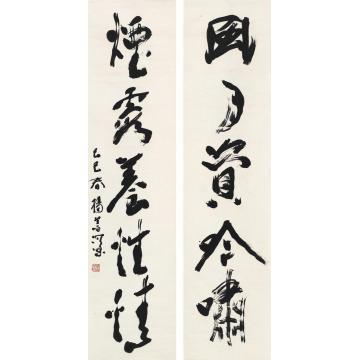 風月資吟嘯
煙霞養性情
乙巳春楊善深